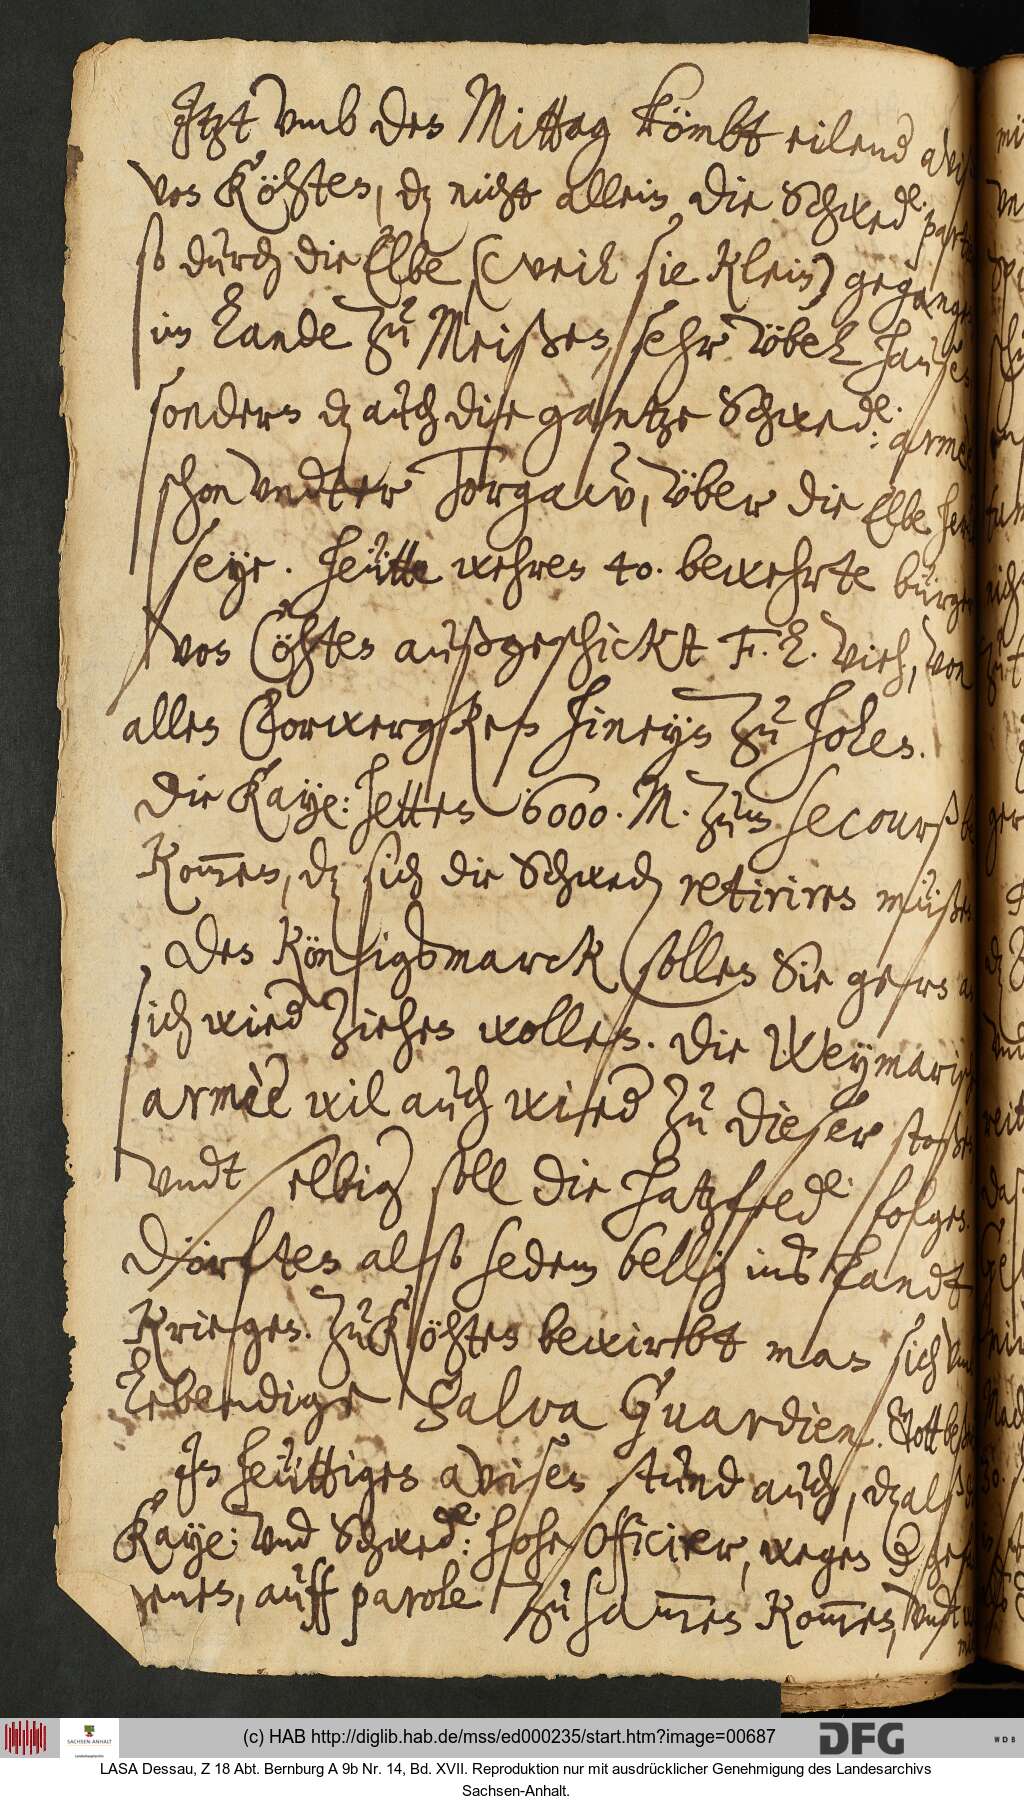 Itzt vmb den Mittag kömbt eilend avis
von Köhten, dz nicht allein die Schwed: partie
so durch die Elbe (weil sie klein) gegangen
im Lande zu Meißen, sehr vbel hausen
sondern dz auch die gantze Schwed: armee
schon vndter Torgaw, vber die Elbe
seye. Heütte wehren 40. bewehrte bürger
von Cöhten außgeschickt F. L. vieh, von
allen hineyn zu holen.
Die Kaye: hetten 6000. M. zum secourß
kommen, dz sich die Schwed retiriren müßen
Den Königsmarck sollen Sie gern an
sich wied ziehen wollen. Die Weymarisch
armèe wil auch wied zu dieser stoßen
vndt selbig soll die Hatzfeld: folgen.
Dörften also sedem belli ins Landt
kriegen. Zu Köhten bewirbt man sich vmb
Lebendige Salva Guardien. Gott
In heüttigen avisen stund auch, dz alß
Kaye: vnd Schwed: hohe Officirer, wegen
auff parole zusammen kommen, vndt
(c) HAB http://diglib.hab.de/mss/ed000235/start.htm?image=00687
SACHSEN-ANHALT
DFG
WDB
LASA Dessau, Z 18 Abt. Bernburg A 9b Nr. 14, Bd. XVII. Reproduktion nur mit ausdrücklicher Genehmigung des Landesarchivs
Sachsen-Anhalt.